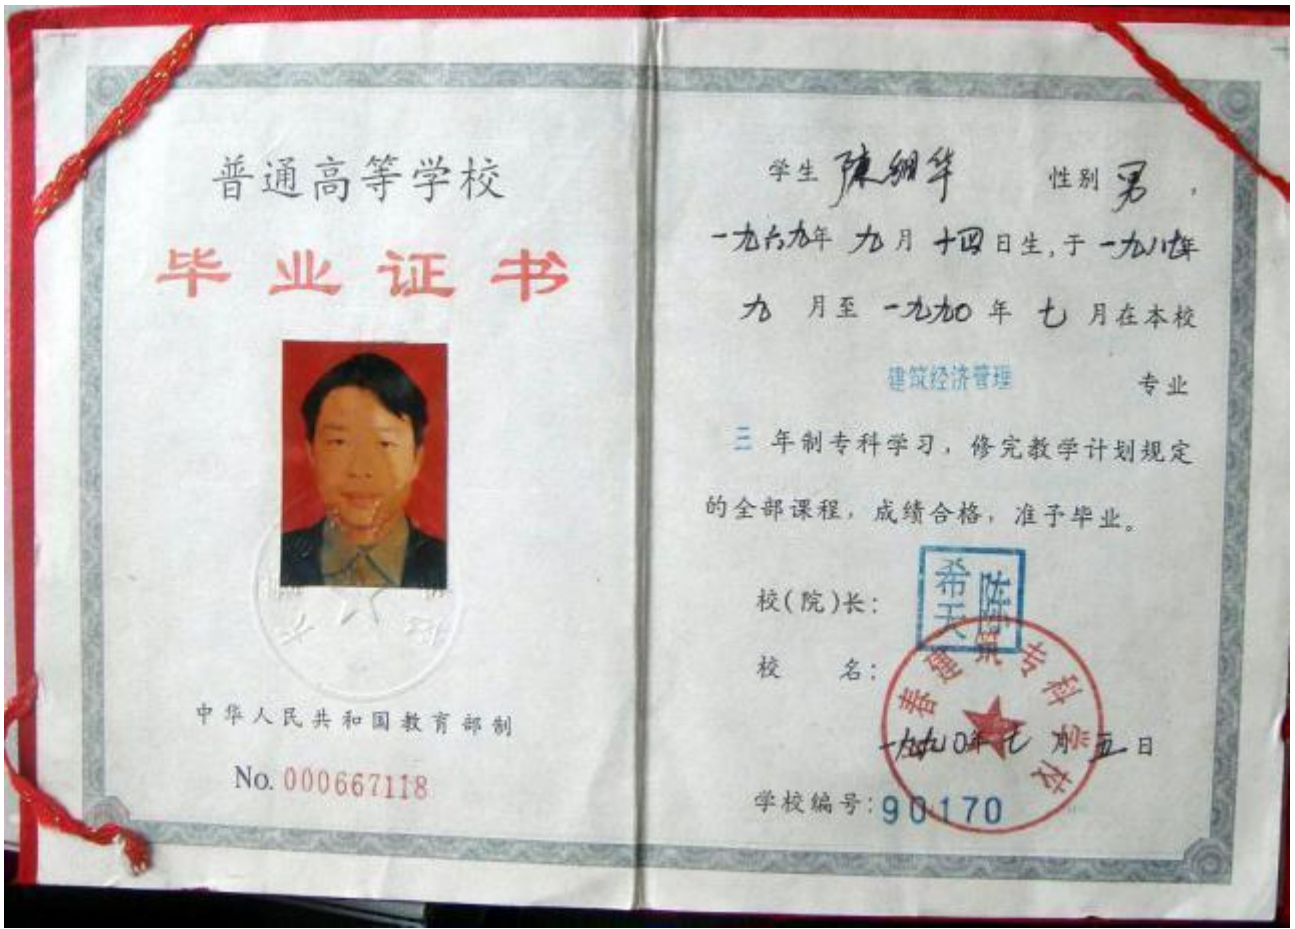 普通高等学校
毕业证书
中华人民共和国教育部制
No. 000667118
学生 性别 男,
一九六九年 九月 十四日生,于一九八七年
九 月至 一九九〇年 七 月在本校
建筑经济管理 专业
三 年制专科学习，修完教学计划规定
的全部课程，成绩合格，准予毕业。
校(院)长:
陈希天
校 名:
春建筑专科学校
一九九〇年七月五日
学校编号:90170